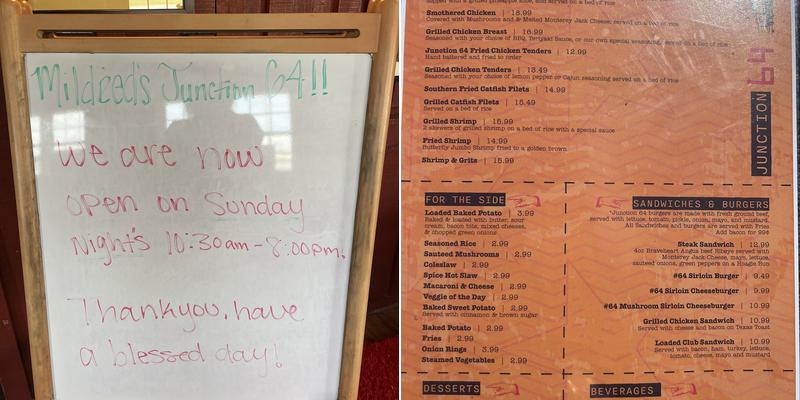 Mildred's Junction 64!!
We are now
open on Sunday
Night's 10:30am-8:00pm.
Thankyou, have
a blessed day!
Smothered Chicken | 18.99
Covered with Mushrooms and & Melted Monterey Jack Cheese, served on a bed of rice
Grilled Chicken Breast | 16.99
Seasoned with your choice of BBQ, Teriyaki Sauce, or our own special seasoning, served on a bed of rice
Junction 64 Fried Chicken Tenders | 12.99
Hand battered and fried to order
Grilled Chicken Tenders | 13.49
Seasoned with your choice of lemon pepper or Cajun seasoning served on a bed of rice
Southern Fried Catfish Filets | 14.99
Grilled Catfish Filets | 15.49
Served on a bed of rice
Grilled Shrimp | 15.99
2 skewers of grilled shrimp on a bed of rice with a special sauce
Fried Shrimp | 14.99
Butterfly Jumbo Shrimp fried to a golden brown
Shrimp & Grits | 15.99
JUNCTION 64
FOR THE SIDE
Loaded Baked Potato | 3.99
Baked & loaded with butter, sour
cream, bacon bits, mixed cheeses,
& chopped green onions
Seasoned Rice | 2.99
Sauteed Mushrooms | 2.99
Coleslaw | 2.99
Spice Hot Slaw | 2.99
Macaroni & Cheese | 2.99
Veggie of the Day | 2.99
Baked Sweet Potato | 2.99
Served with cinnamon & brown sugar
Baked Potato | 2.99
Fries | 2.99
Onion Rings | 3.99
Steamed Vegetables | 2.99
SANDWICHES & BURGERS
*Junction 64 burgers are made with fresh ground beef,
served with lettuce, tomato, pickle, onion, mayo, and mustard.
All Sandwiches and burgers are served with Fries
Add bacon for 99¢
Steak Sandwich | 12.99
4oz Braveheart Angus beef Ribeye served with
Monterey Jack Cheese, mayo, lettuce,
sauteed onions, green peppers on a Hoagie Bun
#64 Sirloin Burger | 9.49
#64 Sirloin Cheeseburger | 9.99
#64 Mushroom Sirloin Cheeseburger | 10.99
Grilled Chicken Sandwich | 10.99
Served with cheese and bacon on Texas Toast
Loaded Club Sandwich | 10.99
Served with bacon, ham, turkey, lettuce,
tomato, cheese, mayo and mustard
DESSERTS
BEVERAGES